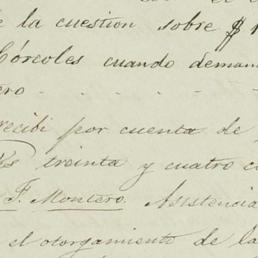 de la cuestion sobre $
Córcoles cuando deman
ero
recibi por cuenta de
treinta y cuatro c
F. Montero. Asistencia
el otorgamiento de la